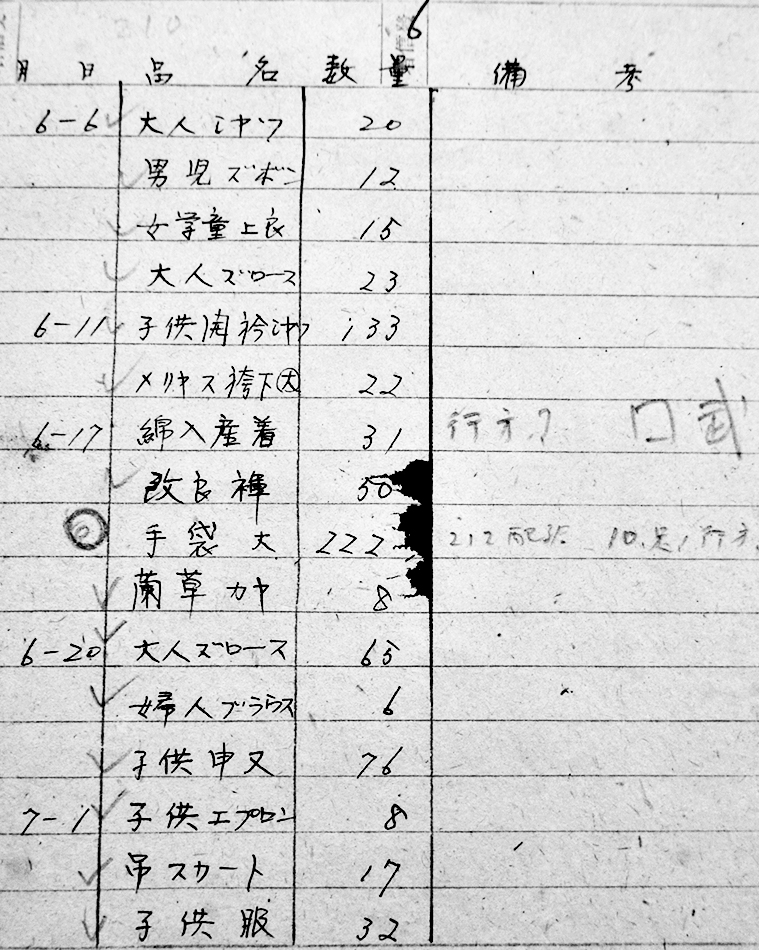 6
月 日 品 名 数 量 備 考
6-6 大人シャツ 20
男児ズボン 12
女学童上衣 15
大人ズロース 23
6-11 子供開衿シャツ 133
メリヤス袴下大 22
6-17 綿入産着 31 行方?
改良褌 50
手袋 大 222 212配給 10足行方
蘭草カヤ 8
6-20 大人ズロース 65
婦人ブラウス 6
子供申又 76
7-1 子供エプロン 8
吊スカート 17
子供服 32